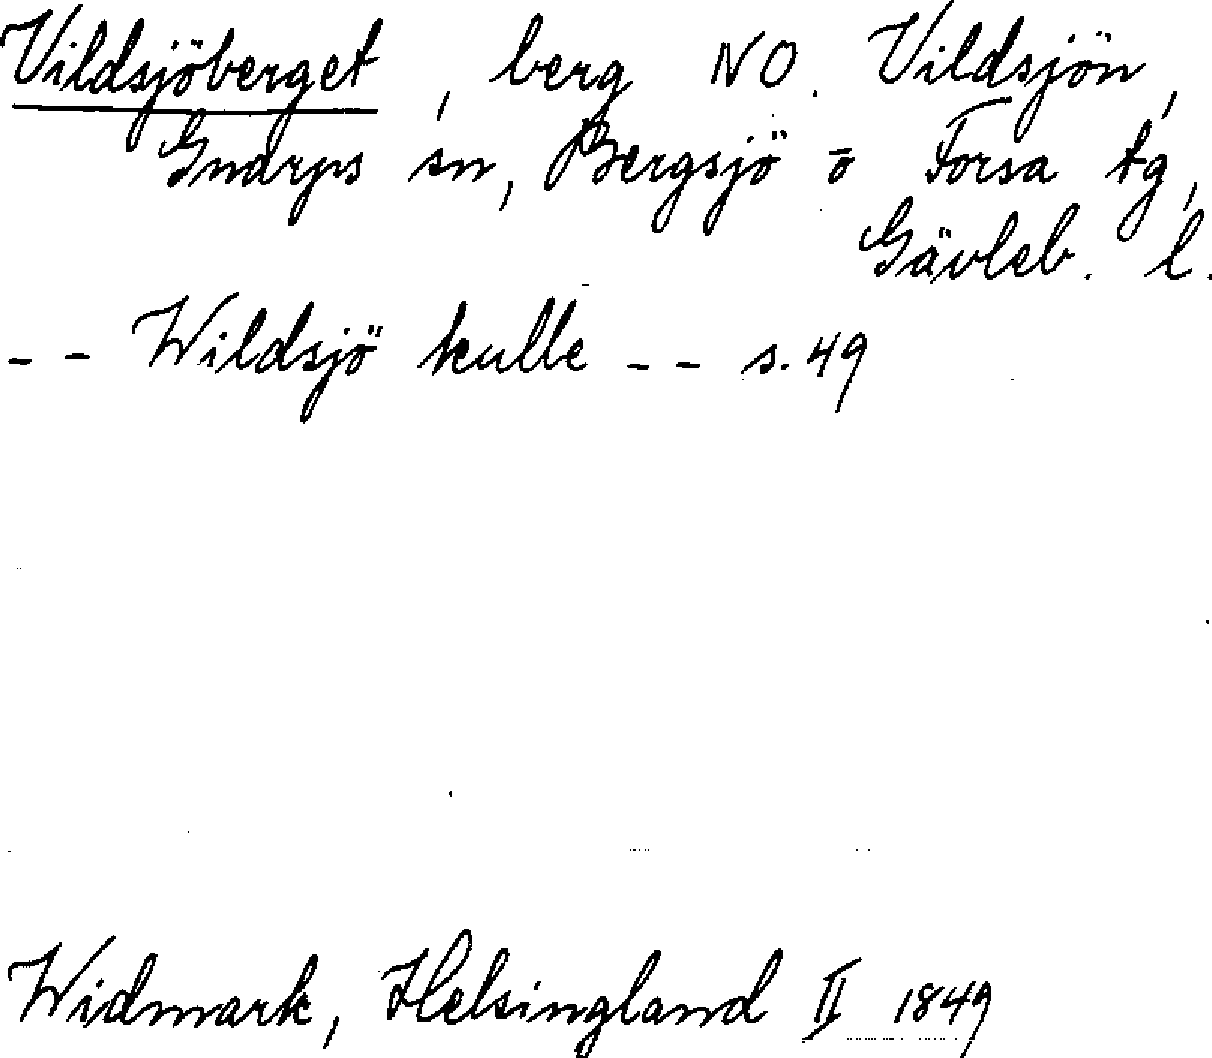 Vildsjöberget, berg NO. Vildsjön,
Gnarps sn, Bergsjö o Forsa tg,
Gävleb. l.
-- Wildsjö kulle -- s. 49
Widmark, Helsingland II 1849